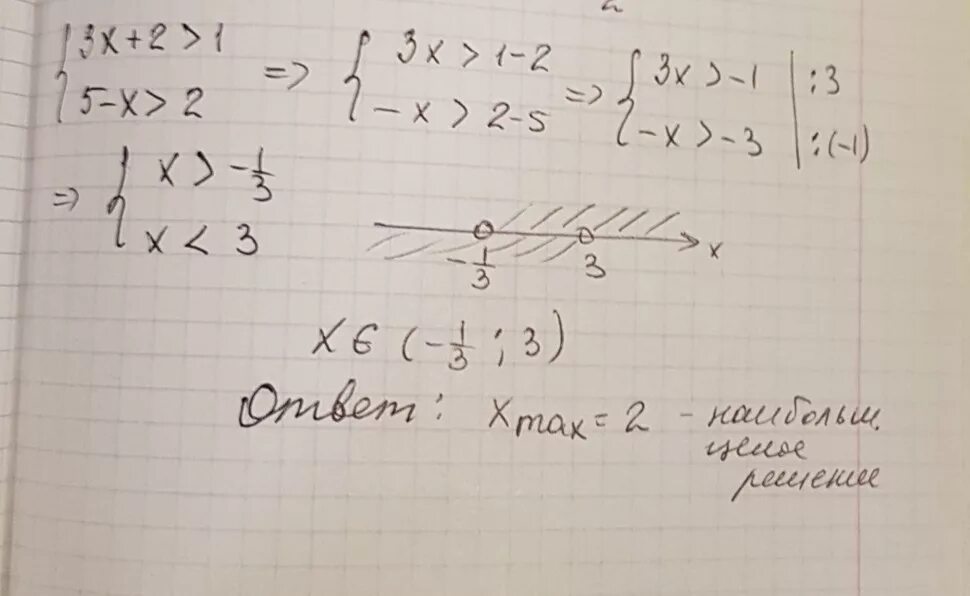 { 3x+2>1 => { 3x > 1-2 => { 3x > -1 | :3
{ 5-x>2 { -x > 2-5 { -x > -3 | :(-1)
=> { x > -1/3
{ x < 3
-1/3 3 x
x ∈ (-1/3 ; 3)
Ответ: x max = 2 - наибольш.
целое
решение